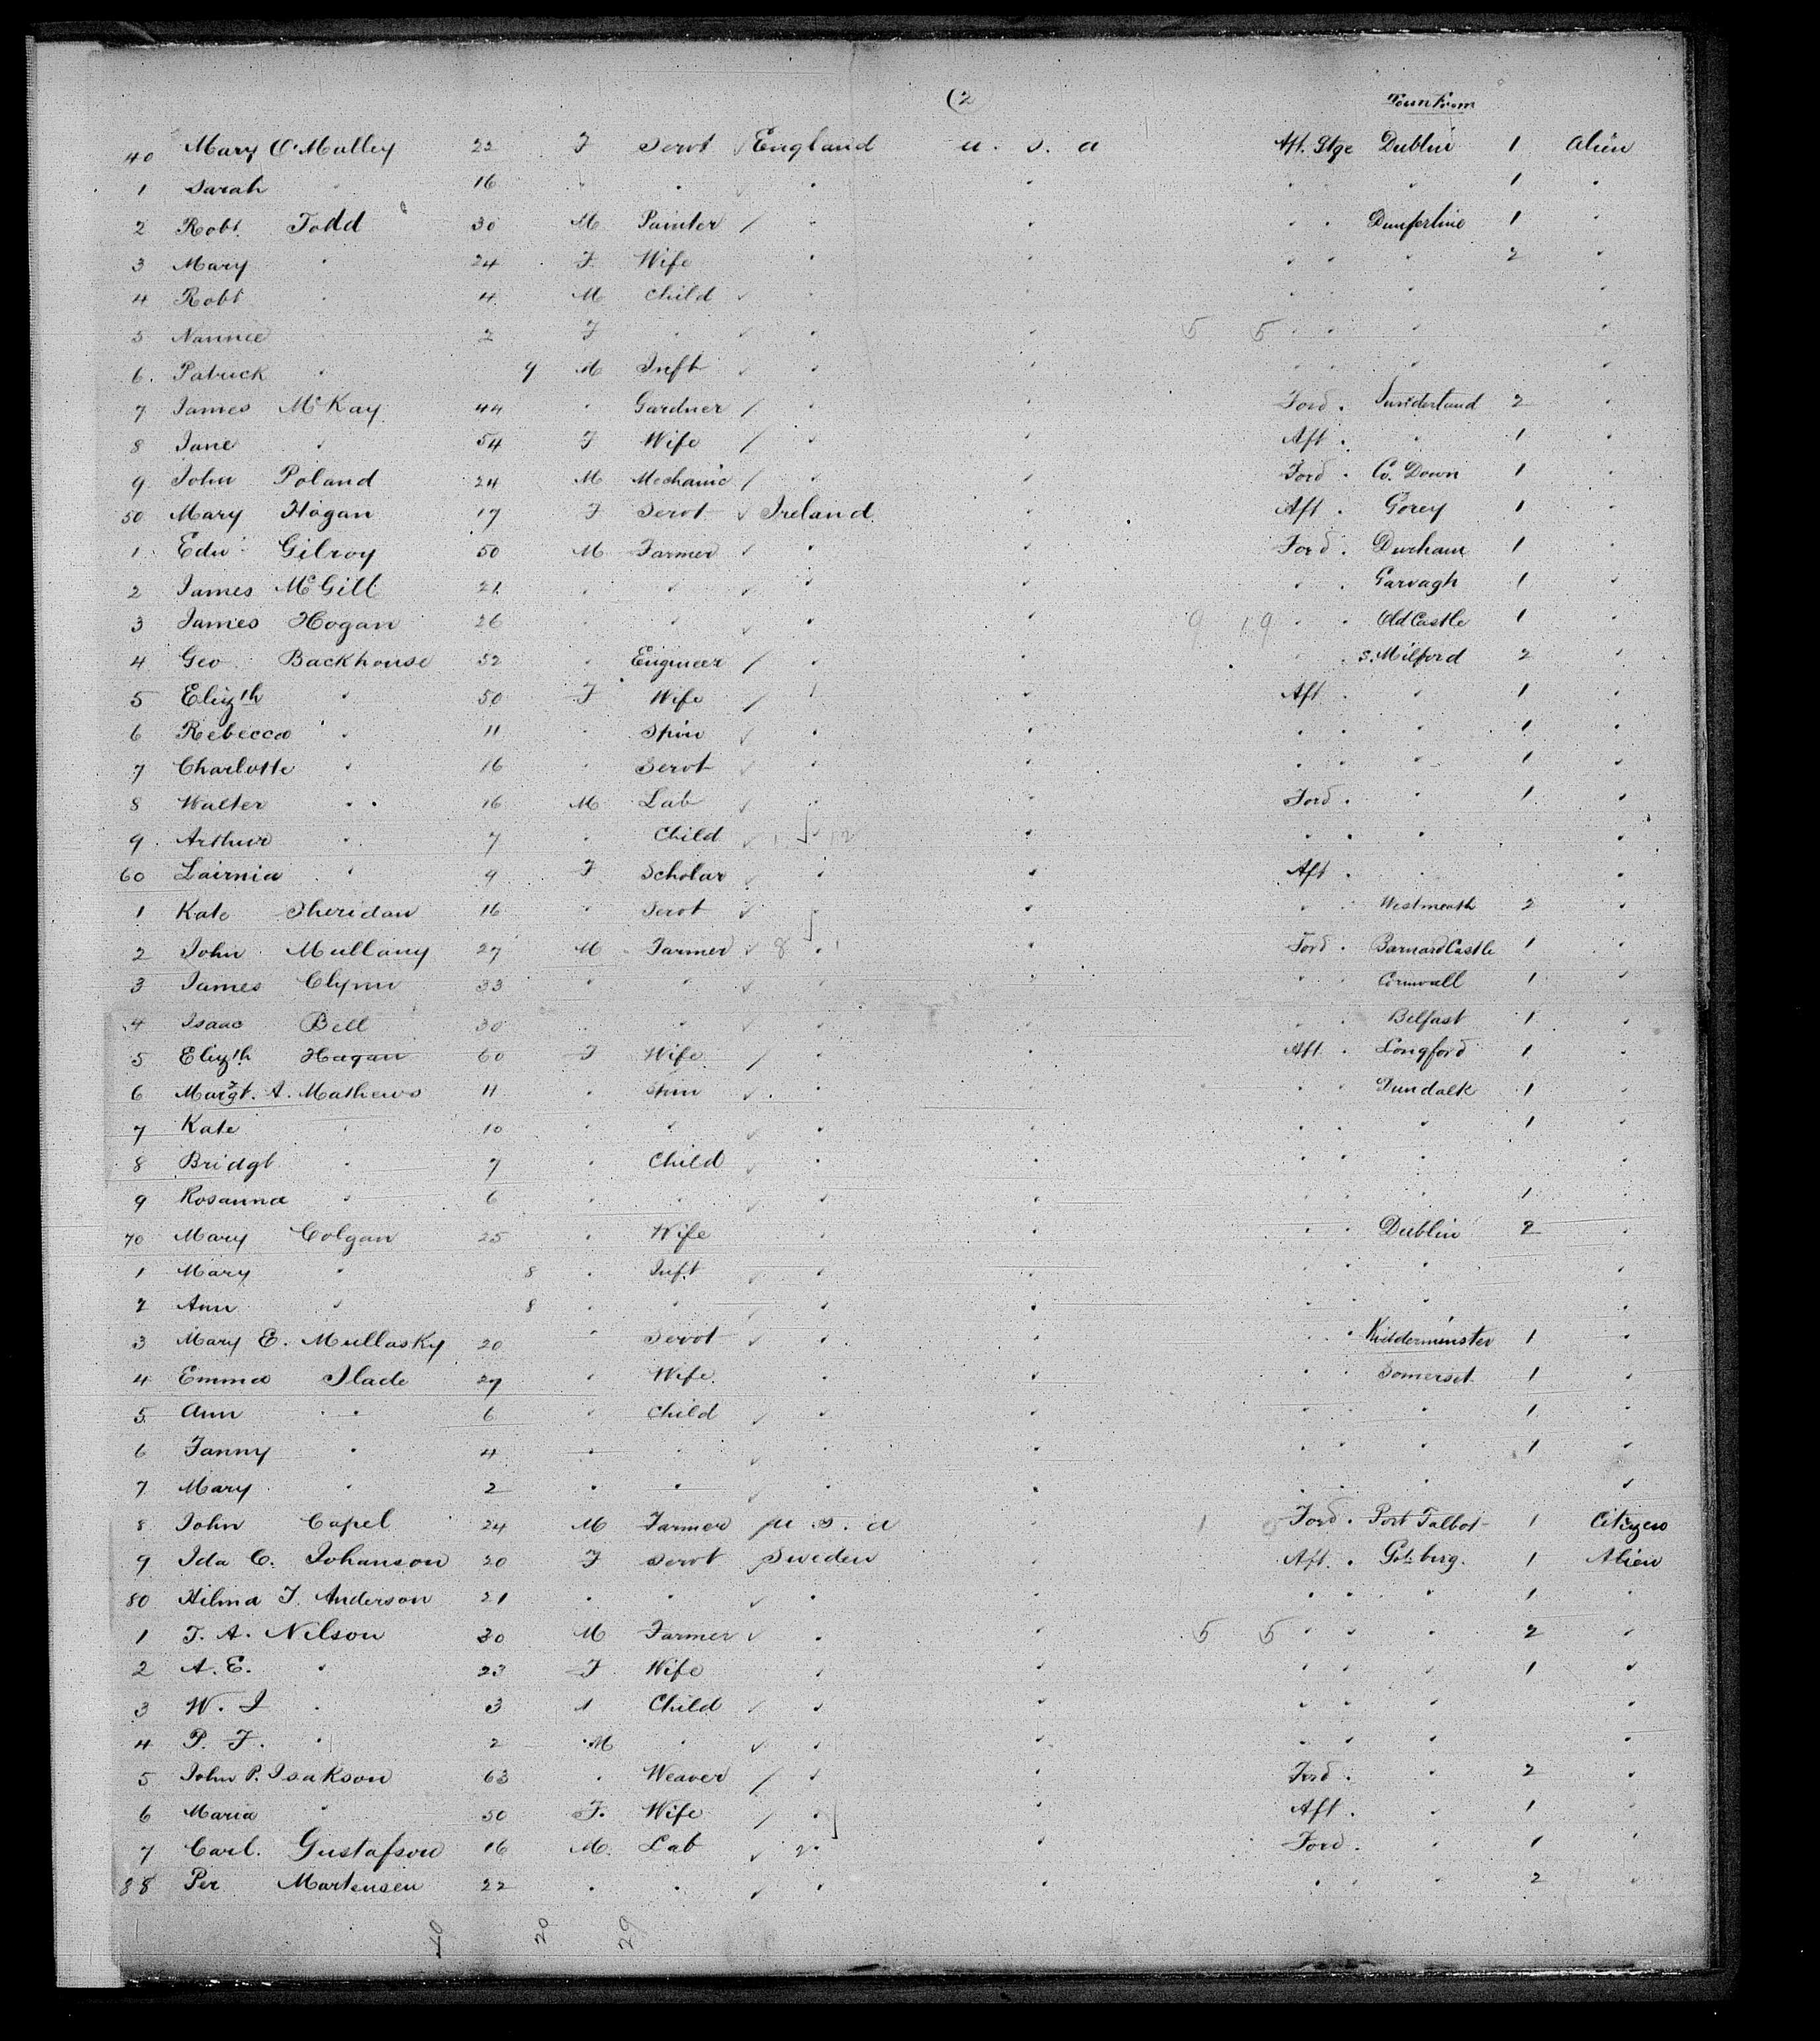 (2
Town From
40 Mary O'Malley 22 F Servt England U. S. A Aft. Stge Dublin 1 Alien
1 Sarah " 16 " " " " " " " 1 "
2 Robt. Todd 30 M Painter " " " " Dumferline 1 "
3 Mary " 24 F. Wife " " " " " 2 "
4 Robt " 4 M Child " " " " " "
5 Nannie 2 F " " " 5 5 " " " "
6. Patrick " 9 M Inft " " " " " "
7 James McKay 44 " Gardner " " Ford " Sunderland 2 "
8 Jane " 54 F Wife " " Aft " " 1 "
9 John Poland 24 M Mechanic " " Ford " Co. Down 1 "
50 Mary Hogan 17 F Servt Ireland " Aft " Gorey 1 "
1 Edw. Gilroy 50 M Farmer " " Ford " Durham 1 "
2 James McGill 21 " " " " " " Garvagh 1 "
3 James Hogan 26 " " " " 9 19 " " Old Castle 1 "
4 Geo. Backhouse 52 " Engineer " " " " S. Milford 2 "
5 Elizth " 50 F Wife " " Aft " " 1 "
6 Rebecca " 11 " Spin " " " " " 1 "
7 Charlotte " 16 " Servt " " " " " 1 "
8 Walter " " 16 M Lab " " Ford " " 1 "
9. Arthur " 7 " Child " 12 " " " " "
60 Lairnia " 9 F Scholar " " Aft " " "
1 Kate Sheridan 16 " Servt " " " " Westmeath 2 "
2 John Mullany 27 M Farmer 8 " " Ford " Barnard Castle 1 "
3 James Clynn 33 " " " " " " Cornwall 1 "
4 Isaac Bell 30 " " " " " " Belfast 1 "
5 Elizth Hagan 60 F Wife " " Aft " Longford 1 "
6 Margt. A. Mathews 11 " Spin " " " " Dundalk 1 "
7 Kate " 10 " " " " " " " 1 "
8 Bridgt " 7 " Child " " " " " "
9 Rosanna " 6 " " " " " " " 1 "
70 Mary Colgan 25 " Wife " " " " Dublin 2 "
1 Mary " 8 " Inft " " " " " "
2 Ann " 8 " " " " " " " "
3 Mary E. Mullasky 20 " Servt " " " " Kidderminster 1 "
4 Emma Slade 27 " Wife " " " " Somerset 1 "
5 Ann " " 6 " Child " " " " " 1 "
6 Fanny " 4 " " " " " " " 1 "
7 Mary " 2 " " " " " " " "
8 John Capel 24 M Farmer U. S. A " 1 0 Ford " Port Talbot 1 Citizen
9 Ida C. Johanson 20 F Servt Sweden " Aft. " Gotberg. 1 Alien
80 Hilma F. Anderson 21 " " " " " " " 1 "
1 F. A. Nilson 30 M Farmer " " 5 5 " " " 2 "
2 A. E. " 23 F Wife " " " " " 1 "
3 W. I " 3 " Child " " " " " "
4 P. F. " 2 M " " " " " " "
5 John P. Isakson 63 " Weaver " " Ford " " 2 "
6 Maria " 50 F. Wife " " Aft " " 1 "
7 Carl. Gustafson 16 M. Lab 2 " " Ford " " 1 "
88 Per Martensen 22 " " " " " " " 2 "
20 29